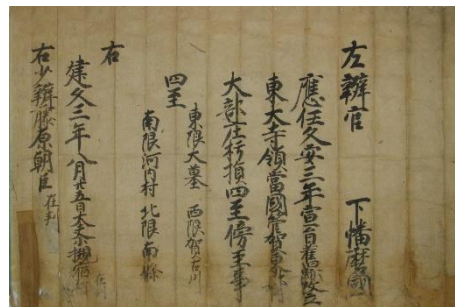 左辨官 下播磨國
應任久安三年宣旨舊
東大寺領當國
大部庄 四至傍示事
四至
東限大墓 西限賀古川
南限河内村 北限南條
右
建久三年八月廿五日大
右少辨藤原朝臣在判